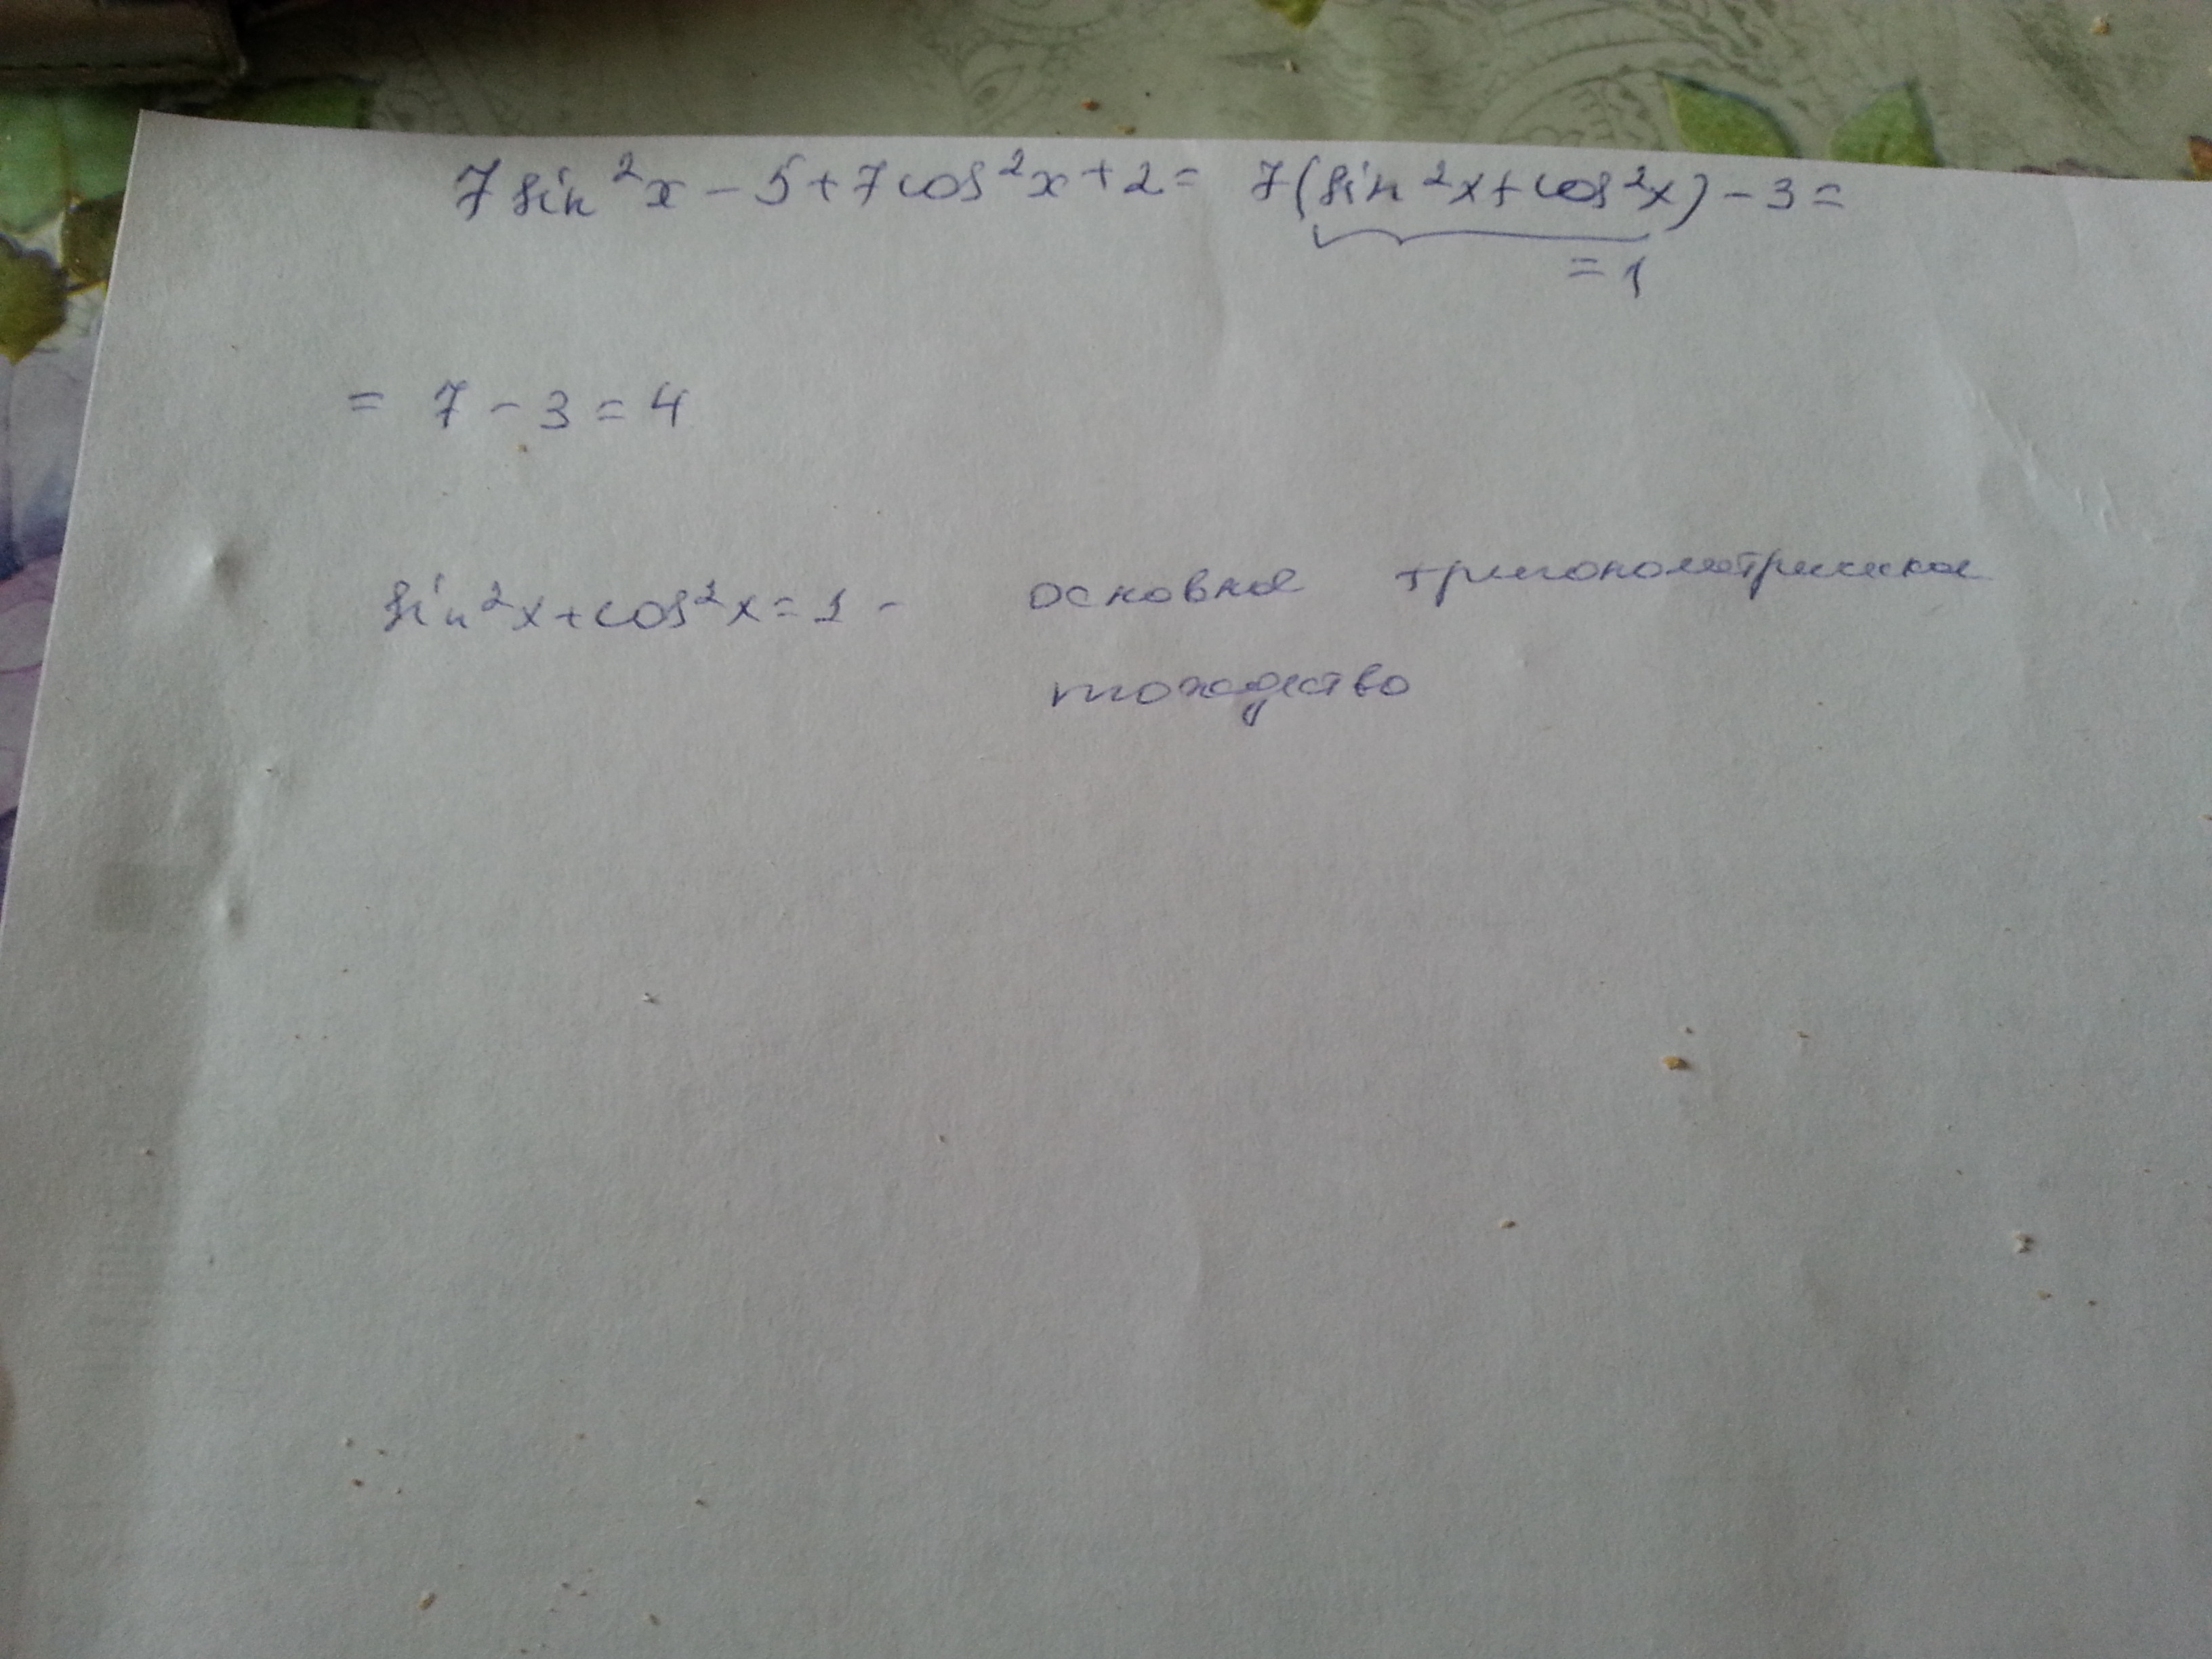 7 sin²x - 5 + 7 cos²x + 2 = 7(sin²x + cos²x) - 3 =
= 1
= 7 - 3 = 4
sin²x + cos²x = 1 - основное тригонометрическое
тождество